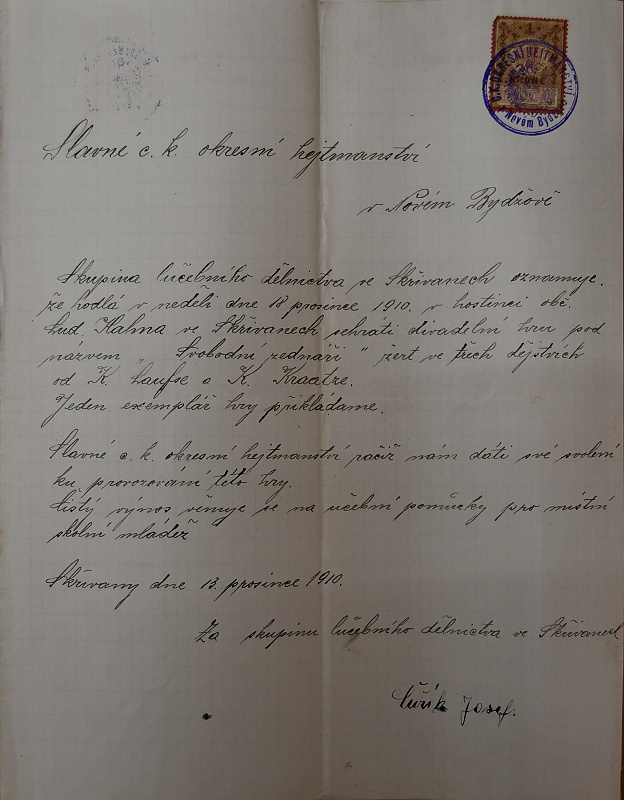 C.K. OKRESNÍ HEJTMANSTVÍ
v Novém Bydž
Slavné c. k. okresní hejtmanství
v Novém Bydžově
Skupina lučebního dělnictva ve Skřivanech oznamuje,
že hodlá v neděli dne 18 prosince 1910. v hostinci obč.
Lud. Kalma ve Skřivanech sehrati divadelní hru pod
názvem „ Svobodní zednáři " žert ve třech dějstvích
od K. Laufse a K. Kraatze.
Jeden exemplář hry přikládame.
Slavné c. k. okresní hejtmanství račiž nám dáti své svolení
ku provozování této hry.
Čistý výnos věnuje se na učební pomůcky pro místní
školní mládež
Skřivany dne 13. prosince 1910.
Za skupinu lučebního dělnictva ve Skřivanech
Josef.